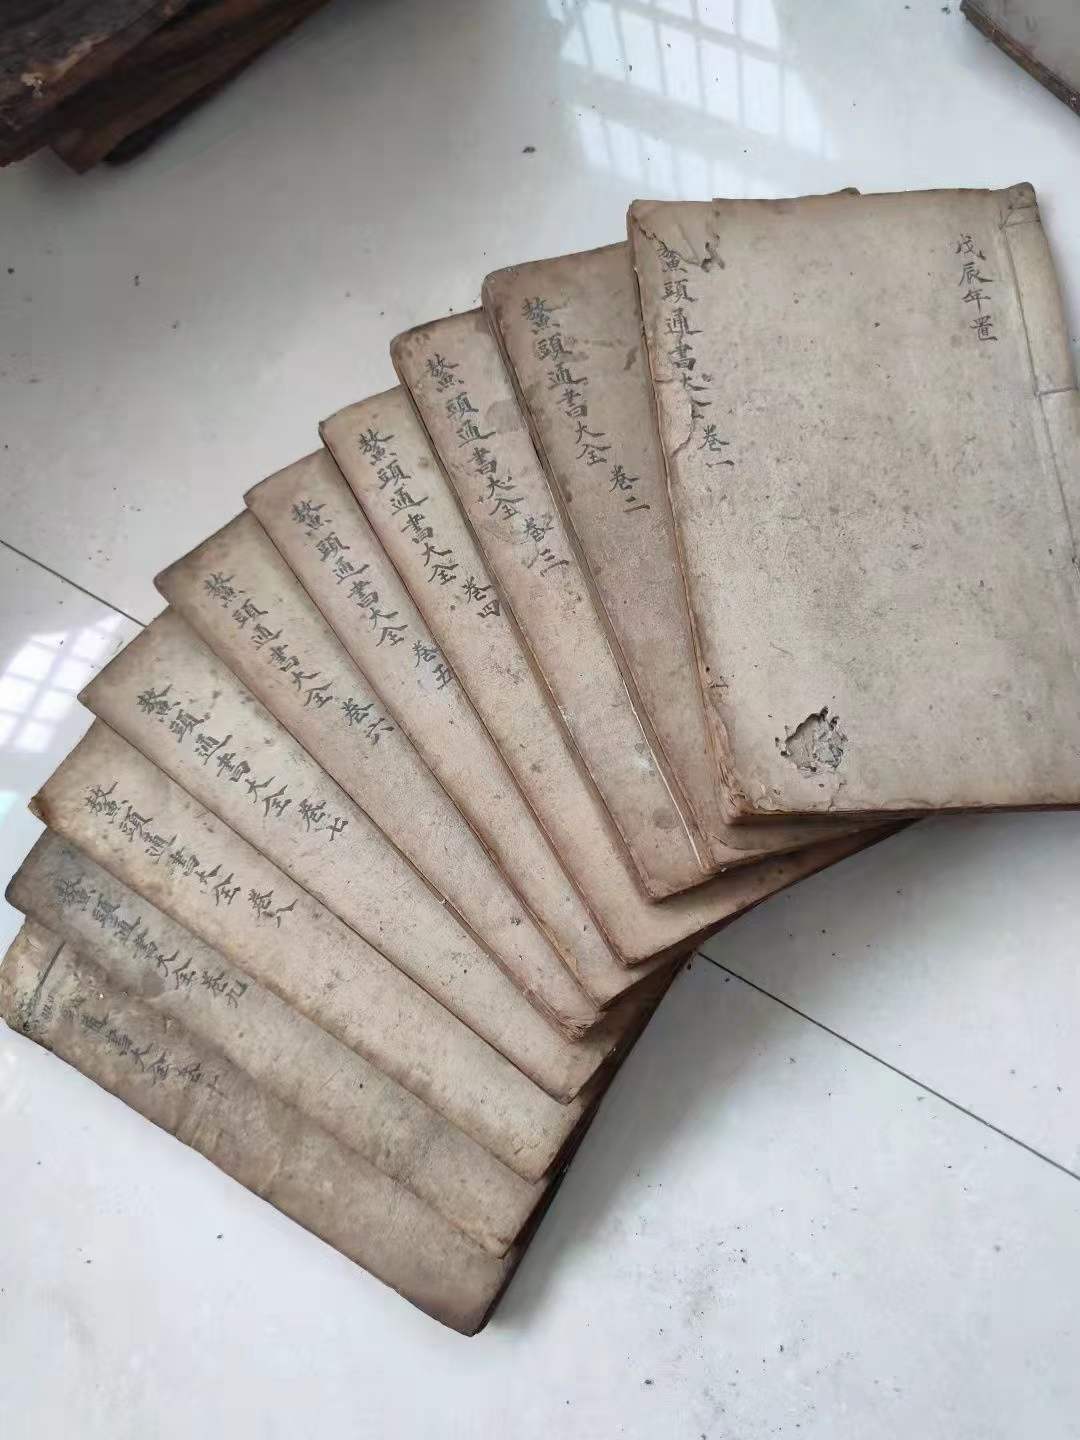 戊辰年置
鰲頭通書大全卷一
鰲頭通書大全 卷二
鰲頭通書大全 卷三
鰲頭通書大全 卷四
鰲頭通書大全 卷五
鰲頭通書大全 卷六
鰲頭通書大全 卷七
鰲頭通書大全 卷八
鰲頭通書大全卷九
通書大全卷十